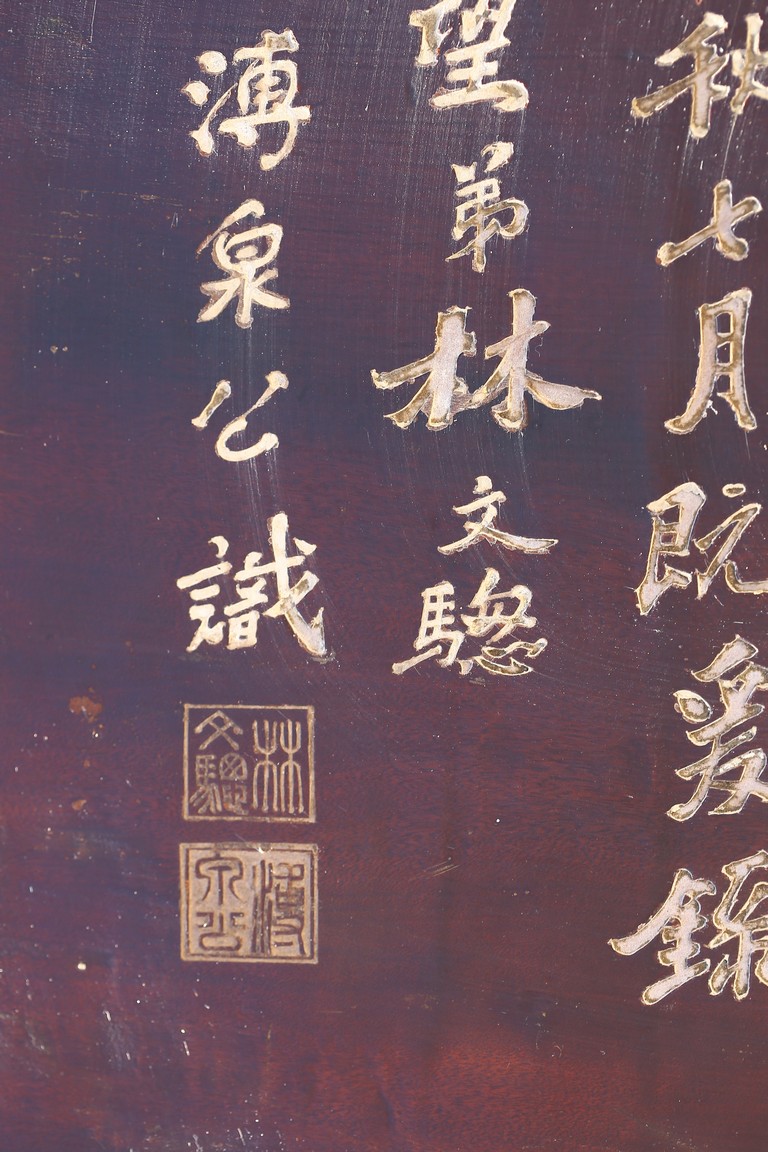 秋七月既爰錄
望弟林文驄
溥泉公識
林文驄
溥泉公